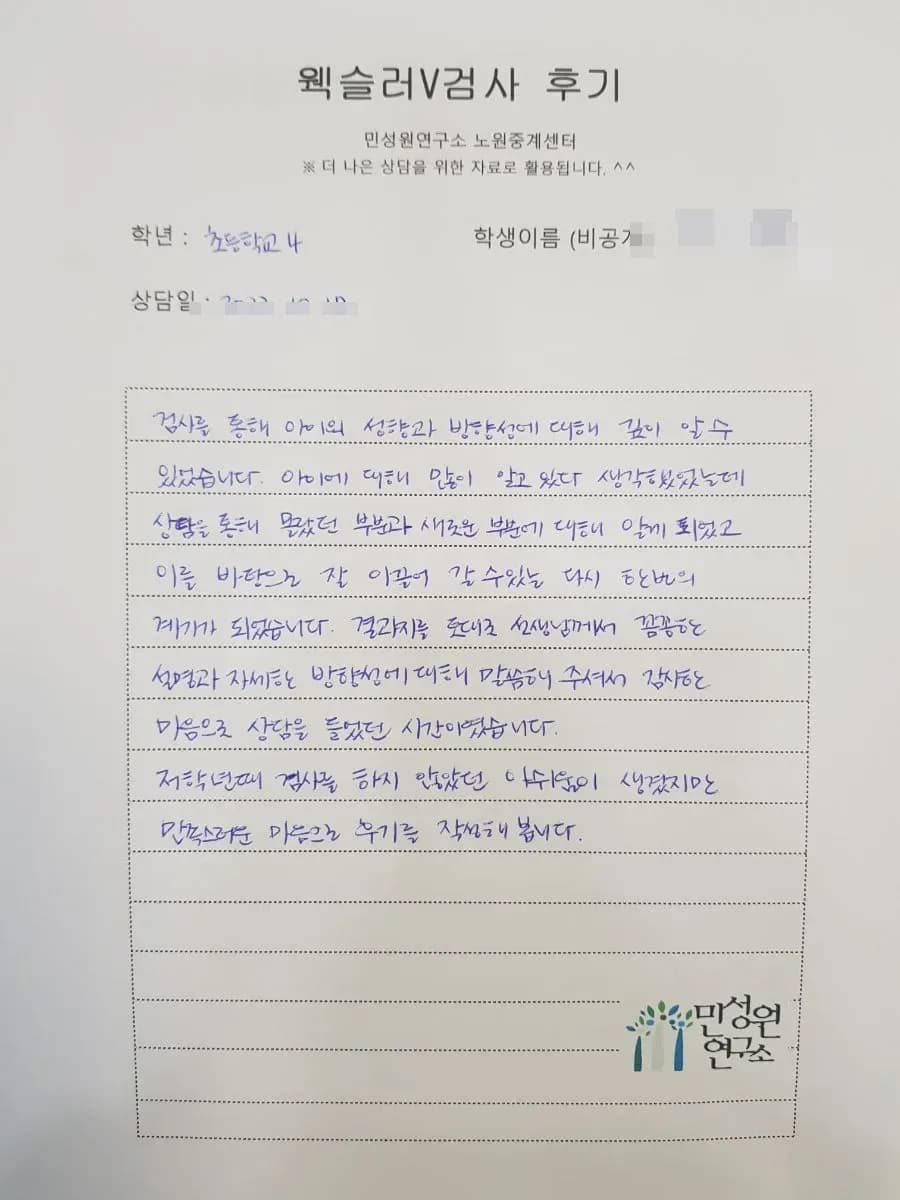 웩슬러V검사 후기
민성원연구소 노원중계센터
※ 더 나은 상담을 위한 자료로 활용됩니다. ^^
학년 : 초등학교 4
학생이름 (비공개
상담일 :
검사를 통해 아이의 성향과 방향성에 대해 깊이 알 수
있었습니다. 아이에 대해 많이 알고 있다 생각했었는데
상담을 통해 몰랐던 부분과 새로운 부분에 대해 알게 되었고
이를 바탕으로 잘 이끌어 갈 수있는 다시 한번의
계기가 되었습니다. 결과지를 토대로 선생님께서 꼼꼼한
설명과 자세한 방향성에 대해 말씀해 주셔서 감사한
마음으로 상담을 들었던 시간이였습니다.
저학년때 검사를 하지 않았던 아쉬움이 생겼지만
만족스러운 마음으로 후기를 작성해 봅니다.
민성원
연구소